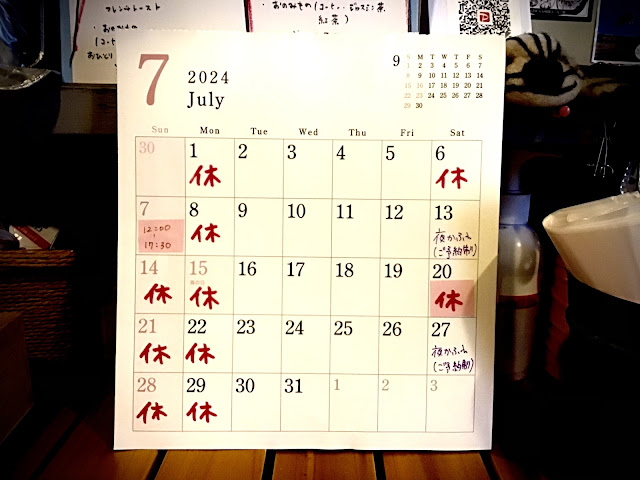 フレンチトースト
・おのみもの(コーヒー・ジャスミン茶
紅茶)
7
2024
July
9
S M T W T F S
1 2 3 4 5 6 7
8 9 10 11 12 13 14
15 16 17 18 19 20 21
22 23 24 25 26 27 28
29 30
Sun Mon Tue Wed Thu Fri Sat
30 1 2 3 4 5 6
休 休
7 8 9 10 11 12 13
12:00
17:30
休
夜かふぇ
(ご予約制)
14 15 16 17 18 19 20
休 休 休
21 22 23 24 25 26 27
休 休
夜かふぇ
(ご予約制)
28 29 30 31 1 2 3
休 休